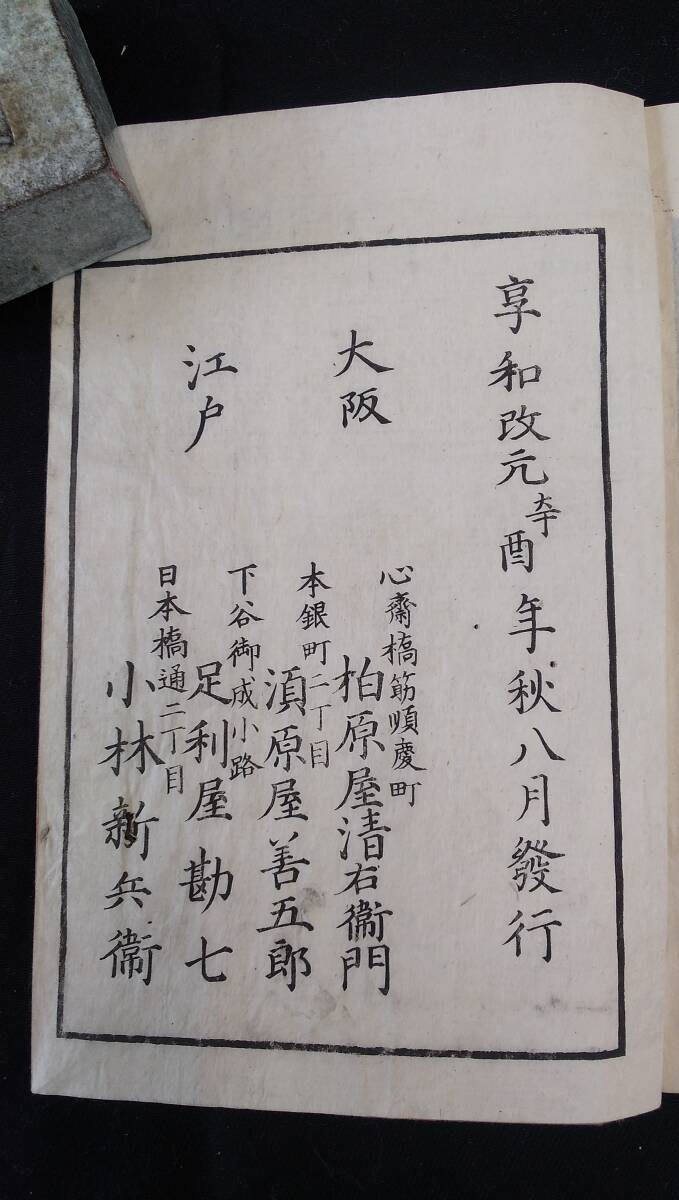 享和改元辛酉年秋八月發行
大阪
心齋橋筋順慶町
柏原屋清右衞門
江戸
本銀町二丁目
須原屋善五郎
下谷御成小路
足利屋勘七
日本橋通二丁目
小林新兵衞